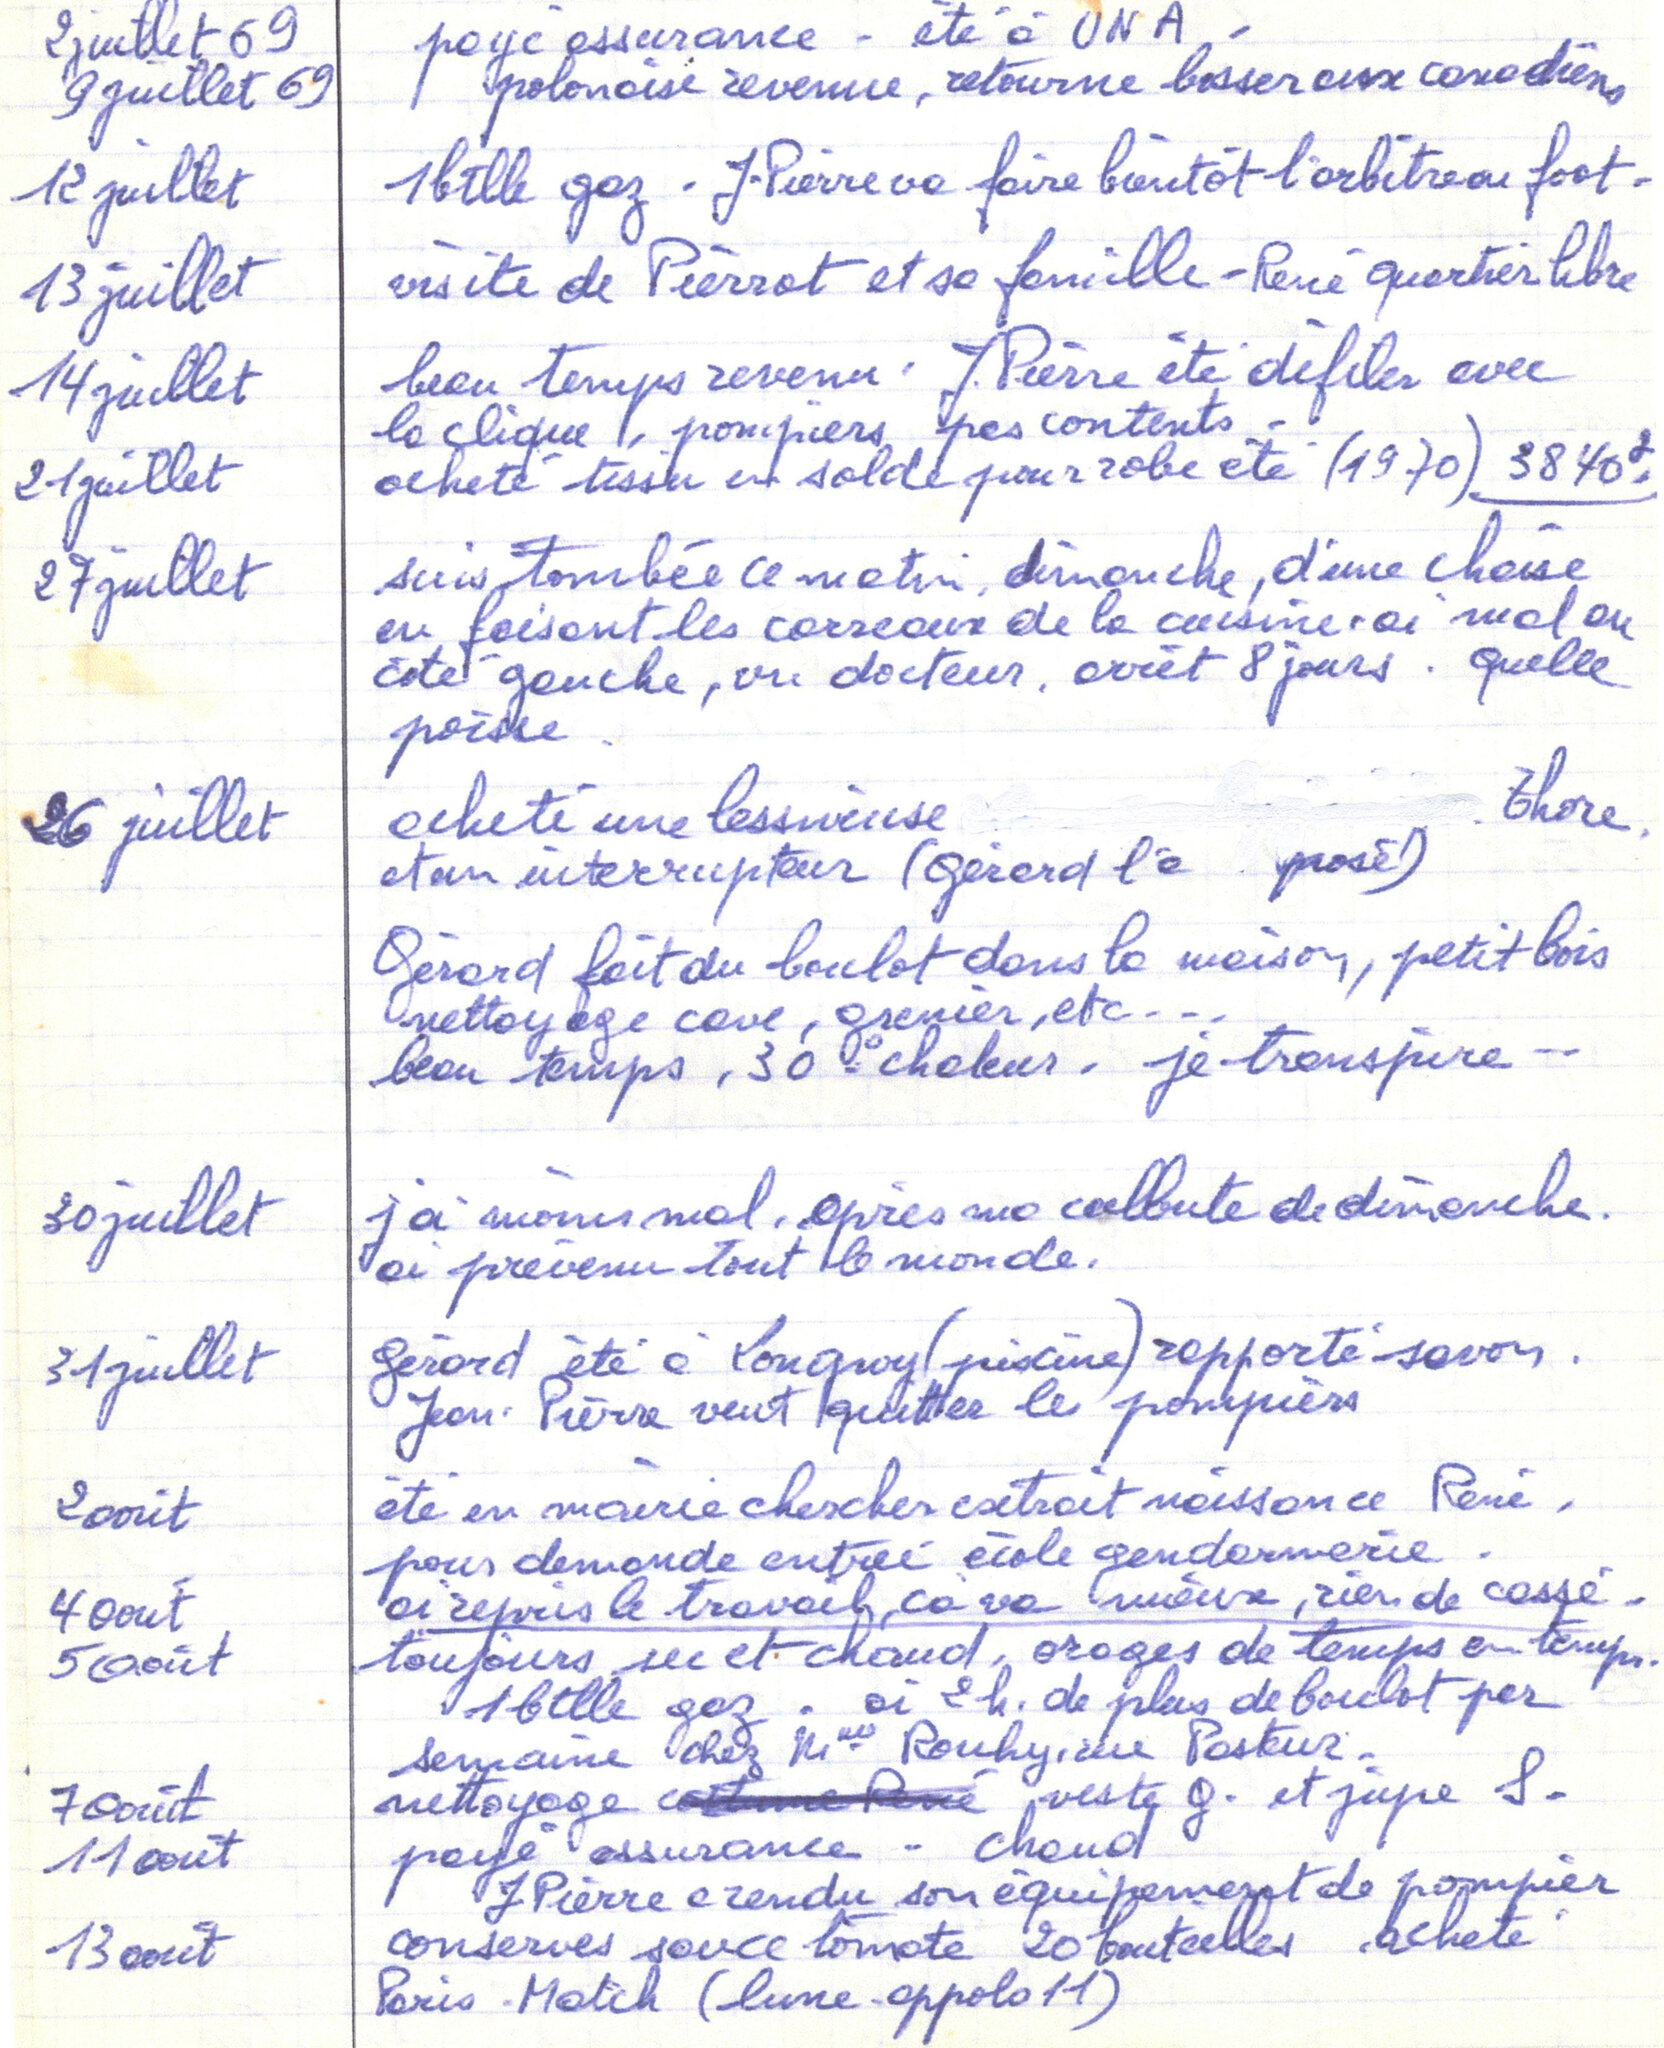 2 juillet 69 payé assurance - été à UNA -
9 juillet 69 polonaise revenue, retourne bosser aux canadiens
12 juillet 1 btlle gaz. J.Pierre va faire bientôt l'arbitre au foot -
13 juillet visite de Pierrot et sa famille - René quartier libre
14 juillet beau temps revenu. J.Pierre été défiler avec
la clique, pompiers pas contents -
21 juillet acheté tissu en solde pour robe été (1970) 3840
27 juillet suis tombée ce matin, dimanche, d'une chaise
en faisant les carreaux de la cuisine. ai mal au
côté gauche, vu docteur. arrêt 8 jours. quelle
poisse.
26 juillet acheté une lessiveuse Thore.
et un interrupteur (Gérard l'a posé)
Gérard fait du boulot dans la maison, petit bois
nettoyage cave, grenier, etc...
beau temps, 30° chaleur. je transpire --
30 juillet j'ai moins mal. après ma culbute de dimanche.
ai prévenu tout le monde.
31 juillet Gérard été à Longwy (piscine) rapporté savon.
Jean-Pierre veut quitter les pompiers
2 août été en mairie chercher extrait naissance René,
pour demande entrée école gendarmerie.
4 août ai repris le travail, ça va mieux, rien de cassé.
5 août toujours sec et chaud, orages de temps en temps.
1 btlle gaz. ai 2h. de plus de boulot par
semaine chez Mme Rouhy, rue Pasteur.
7 août nettoyage costume René veste G. et jupe S.
11 août payé assurance - chaud
J Pierre a rendu son équipement de pompier
13 août conserves sauce tomate 20 bouteilles. acheté
Paris-Match (lune-appolo 11)